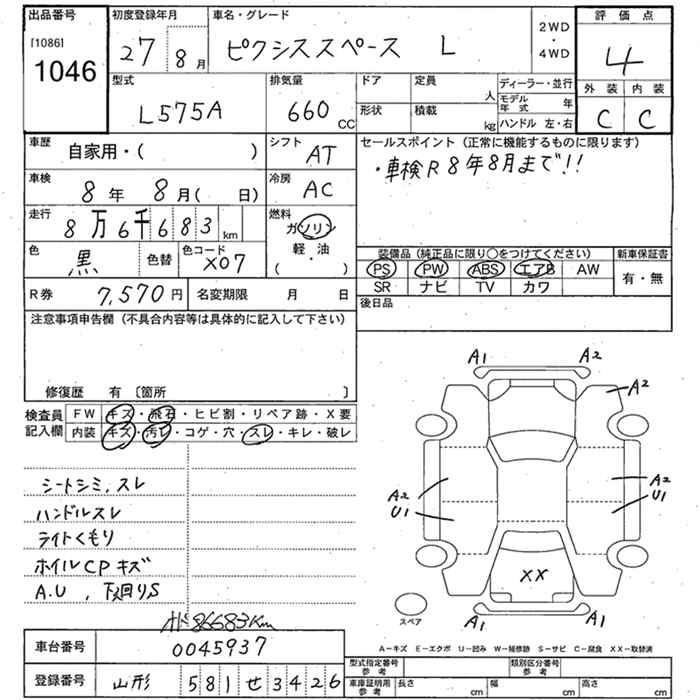 出品番号
[1086]
1046
初度登録年月
27 8月
車名・グレード
ピクシススペース L
2WD
・
4WD
評価点
4
外装 内装
C C
型式
L575A
排気量
660 CC
ドア
定員
人
形状
積載
kg
ディーラー・並行
モデル年式 年
ハンドル 左・右
車歴
自家用・( )
シフト
AT
セールスポイント (正常に機能するものに限ります)
・車検R8年8月まで!!
車検
8年 8月( 日)
冷房
AC
走行
8万6千683km
燃料
ガソリン
軽・油
( )
色
黒
色替
色コード
X07
装備品 (純正品に限り○をつけてください)
新車保証書
PS PW ABS エアB AW
SR ナビ TV カワ
有・無
R券
7,570円
名変期限 月 日
後日品
注意事項申告欄 (不具合内容等は具体的に記入して下さい)
修復歴 有 〔箇所 〕
検査員
記入欄
FW キズ・飛石・ヒビ割・リペア跡・X要
内装 キズ・汚レ・コゲ・穴・スレ・キレ・破レ
シートシミ,スレ
ハンドルスレ
ライトくもり
ホイルCPキズ
A.U 、下廻りS
A1 A2
A2
A2
U1
A2
U1
XX
A1 A1
スペア
A−キズ E−エクボ U−凹み W−補修跡 S−サビ C−腐食 XX−取替済
86683Km
車台番号
0045937
登録番号
山形 581 せ 3426
型式指定番号
参考
類別区分番号
参考
車庫証明用
参考
長さ cm
幅 cm
高さ cm